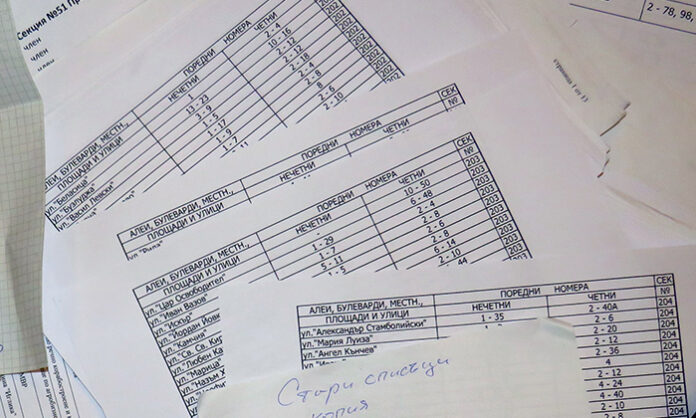 Секция №51
член
член
2 - 78, 98,
страница 1 от 13
АЛЕИ, БУЛЕВАРДИ, МЕСТН., ПОРЕДНИ НОМЕРА СЕК
ПЛОЩАДИ И УЛИЦИ НЕЧЕТНИ ЧЕТНИ
ул. "Беласица" 1 2 - 4 202
ул. "Бузлуджа" 13 - 23 10 - 16 202
ул. "Васил Левски" 3 - 9 2 - 12 202
1 - 5 2 - 12 202
1 - 17 2 - 18 202
1 - 9 2 - 4 202
1 - 7 2 - 8
2 - 6
2 - 10
АЛЕИ, БУЛЕВАРДИ, МЕСТН., ПОРЕДНИ НОМЕРА СЕК
ПЛОЩАДИ И УЛИЦИ НЕЧЕТНИ ЧЕТНИ №
АЛЕИ, БУЛЕВАРДИ, МЕСТН., ПОРЕДНИ НОМЕРА СЕК
ПЛОЩАДИ И УЛИЦИ НЕЧЕТНИ ЧЕТНИ №
ул."Цар Освободител" 1 - 29 10 - 50 203
ул."Иван Вазов" 1 - 7 6 - 48 203
ул."Искър" 5 - 11 2 - 4 203
ул."Йордан Йовк 1 - 5 2 - 8 203
ул."Камчия" 2 - 6 203
ул."Св. Св. Кир 2 - 8 203
ул."Любен Ка 6 - 14 203
ул."Марица" 2 - 10 203
ул."Назъм Х 44
АЛЕИ, БУЛЕВАРДИ, МЕСТН., ПОРЕДНИ НОМЕРА СЕК
ПЛОЩАДИ И УЛИЦИ НЕЧЕТНИ ЧЕТНИ №
ул."Александър Стамболийски" 1 - 35 2 - 40А 204
ул."Мария Луиза" 2 - 6 204
ул."Ангел Кънчев" 2 - 20 204
2 - 12 204
2 - 36 204
4 204
2 - 12 204
4 - 24 204
4 - 40 204
2 - 10 204
Стари списъци
копия